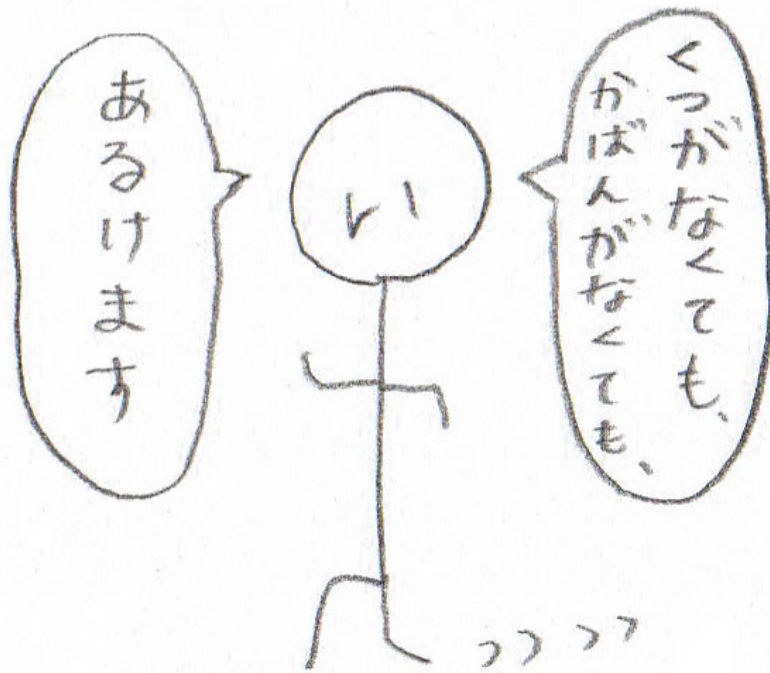 くつがなくても、
かばんがなくても、
あるけます
い